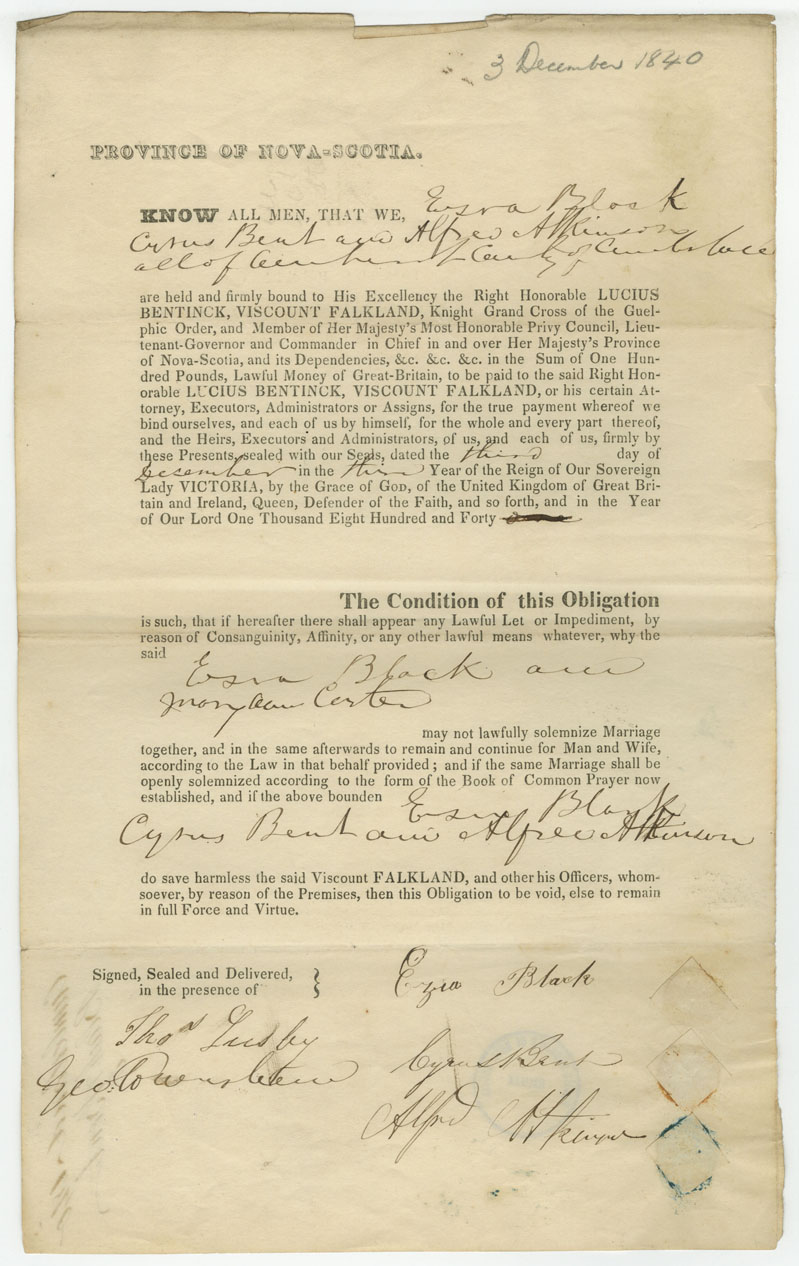 3 December 1840
PROVINCE OF NOVA-SCOTIA.
KNOW ALL MEN, THAT WE, Ezra Black
Cyrus Bent and Alfred Atkinson
all of Amherst County of Cumberland
are held and firmly bound to His Excellency the Right Honorable LUCIUS
BENTINCK, VISCOUNT FALKLAND, Knight Grand Cross of the Guel-
phic Order, and Member of Her Majesty's Most Honorable Privy Council, Lieu-
tenant-Governor and Commander in Chief in and over Her Majesty's Province
of Nova-Scotia, and its Dependencies, &c. &c. &c. in the Sum of One Hun-
dred Pounds, Lawful Money of Great-Britain, to be paid to the said Right Hon-
orable LUCIUS BENTINCK, VISCOUNT FALKLAND, or his certain At-
torney, Executors, Administrators or Assigns, for the true payment whereof we
bind ourselves, and each of us by himself, for the whole and every part thereof,
and the Heirs, Executors and Administrators, of us, and each of us, firmly by
these Presents, sealed with our Seals, dated the third day of
December in the third Year of the Reign of Our Sovereign
Lady VICTORIA, by the Grace of GOD, of the United Kingdom of Great Bri-
tain and Ireland, Queen, Defender of the Faith, and so forth, and in the Year
of Our Lord One Thousand Eight Hundred and Forty
The Condition of this Obligation
is such, that if hereafter there shall appear any Lawful Let or Impediment, by
reason of Consanguinity, Affinity, or any other lawful means whatever, why the
said
Ezra Black and
Mary Ann Carter
may not lawfully solemnize Marriage
together, and in the same afterwards to remain and continue for Man and Wife,
according to the Law in that behalf provided; and if the same Marriage shall be
openly solemnized according to the form of the Book of Common Prayer now
established, and if the above bounden Ezra Black
Cyrus Bent and Alfred Atkinson
do save harmless the said Viscount FALKLAND, and other his Officers, whom-
soever, by reason of the Premises, then this Obligation to be void, else to remain
in full Force and Virtue.
Signed, Sealed and Delivered,
in the presence of
Ezra Black
Thos Lusby
Cyrus Bent
Geo.
Alfred Atkinson